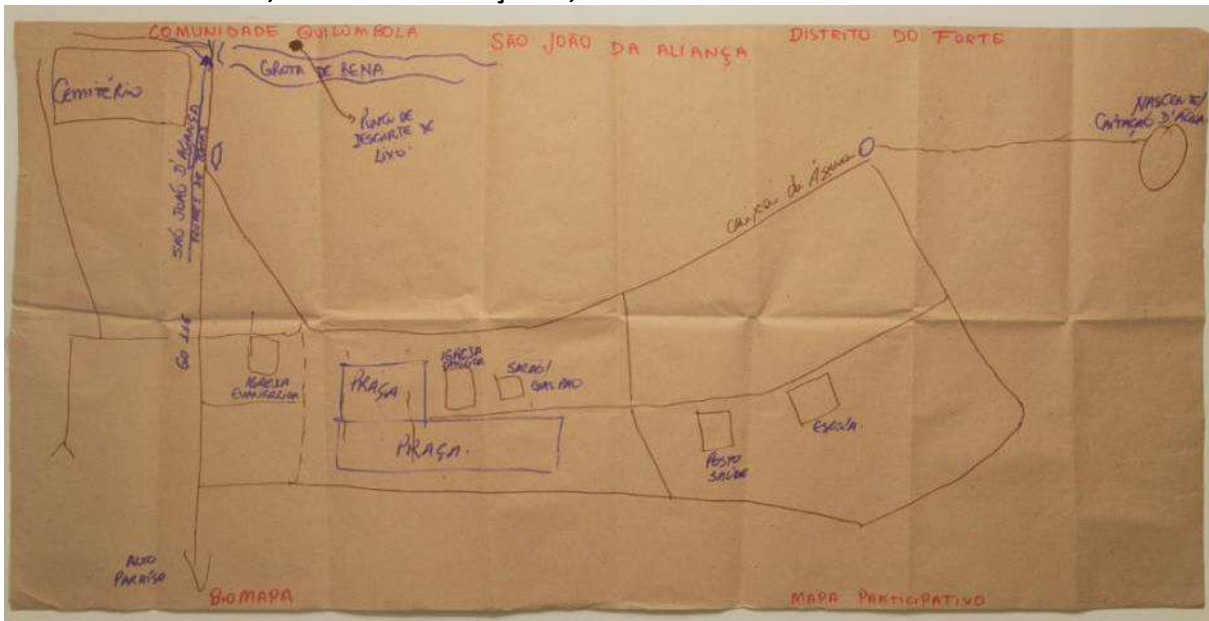 COMUNIDADE QUILOMBOLA
SÃO JOÃO DA ALIANÇA
DISTRITO DO FORTE
GROTA DE BENA
CEMITÉRIO
PONTO DE
DESCARTE DE
LIXO
NASCENTE/
CAPTAÇÃO D'ÁGUA
SÃO JOÃO D'ALIANÇA
caixa da Água
GO 116
IGREJA
EVANGÉLICA
PRAÇA
IGREJA
CATÓLICA
GALPÃO
PRAÇA.
POSTO
SAÚDE
ESCOLA.
ALTO
PARAÍSO
BIOMAPA
MAPA PARTICIPATIVO